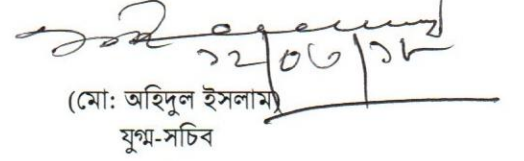 ১২/০৬/১৮
(মো: অহিদুল ইসলাম)
যুগ্ম-সচিব